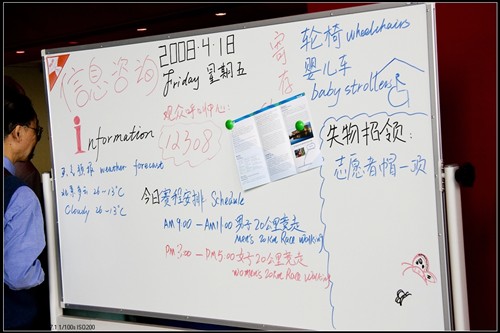 信息咨询
2008.4.18
Friday 星期五
寄存
轮椅 wheelchairs
婴儿车
baby stroller
information
观众呼叫中心:
12308
失物招领:
志愿者帽一顶
weather forecast
26-13°C
Cloudy 26-13°C
今日赛程安排 Schedule
AM 9:00 — AM11:00 男子20公里竞走
Men's 20km Race Walking
PM 3:00 — PM 5:00 女子20公里竞走
Women's 20km Race Walking
1/100s ISO200